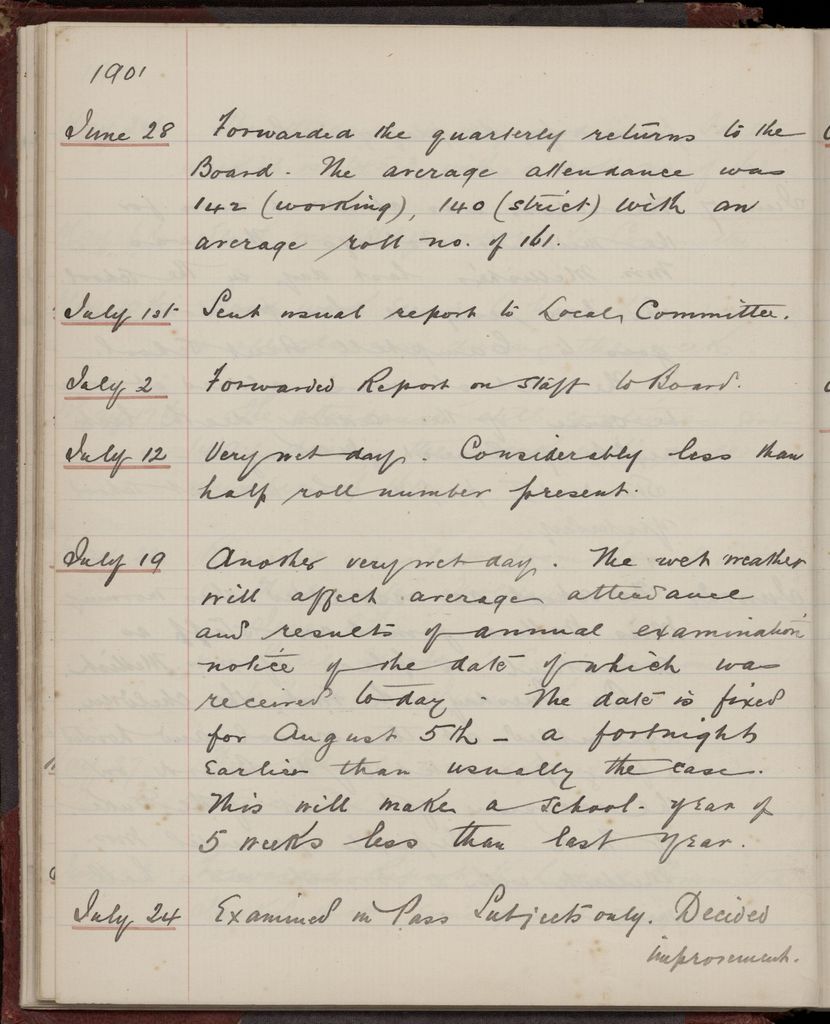 1901
June 28 Forwarded the quarterly returns to the
Board. The average attendance was
142 (working), 140 (strict) with an
average roll no. of 161.
July 1st Sent usual report to Local Committee.
July 2 Forwarded Report on Staff to Board.
July 12 Very wet day. Considerably less than
half roll number present.
July 19 Another very wet day. The wet weather
will affect average attendance
and results of annual examination
notice of the date of which was
received to day. The date is fixed
for August 5th – a fortnight
earlier than usually the case.
This will make a school-year of
5 weeks less than last year.
July 24 Examined in Pass Subjects only. Decided
improvement.